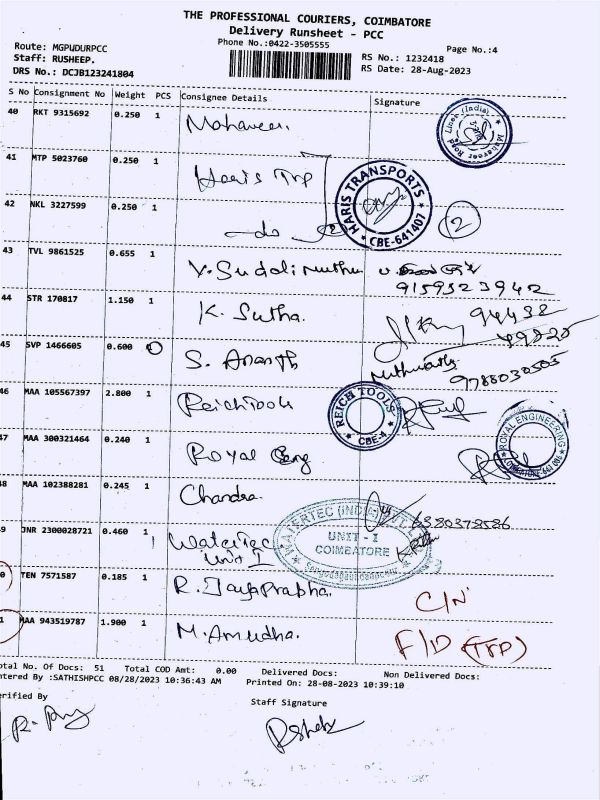 THE PROFESSIONAL COURIERS, COIMBATORE
Delivery Runsheet - PCC
Phone No.:0422-3505555
Page No.:4
Route: MGPUDURPCC
Staff: RUSHEEP.
DRS No.: DCJB123241804
RS No.: 1232418
RS Date: 28-Aug-2023
S No Consignment No Weight PCS Consignee Details Signature
40 RKT 9315692 0.250 1 Mahaveer.
41 MTP 5023760 0.250 1 Haris Trp
HARIS TRANSPORTS
CBE-641407
42 NKL 3227599 0.250 1 - do 2
43 TVL 9861525 0.655 1 V. Sudali Muthu
9159523942
44 STR 170817 1.150 1 K. Sutha. 94432
49825
45 SVP 1466605 0.600 S. Ananth
9788030505
46 MAA 105567397 2.800 1 ReichTools
REICH TOOLS
CBE-4
47 MAA 300321464 0.240 1 Royal Eng
ROYAL ENGINEERING
48 MAA 102388281 0.245 1 Chandra. 6380378586
9 JNR 2300028721 0.460 1 Watertec
Unit I
WATERTEC (INDIA)
UNIT - I
COIMBATORE
0 TEN 7571587 0.185 1 R. JayaPrabha. C/N
1 MAA 943519787 1.900 1 M. Amudha. F/D (TRP)
otal No. Of Docs: 51 Total COD Amt: 0.00 Delivered Docs: Non Delivered Docs:
ntered By :SATHISHPCC 08/28/2023 10:36:43 AM Printed On: 28-08-2023 10:39:10
erified By Staff Signature